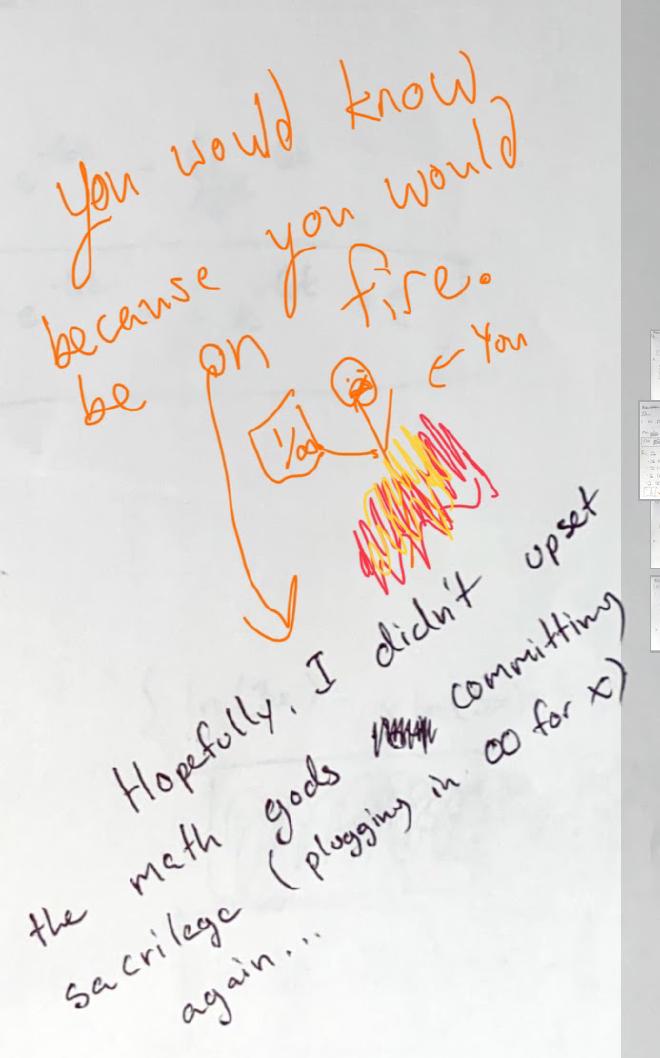 you would know,
because you would
be on fire.
← You
1/∞
Hopefully, I didn't upset
the math gods committing
sacrilege (plugging in ∞ for x)
again...